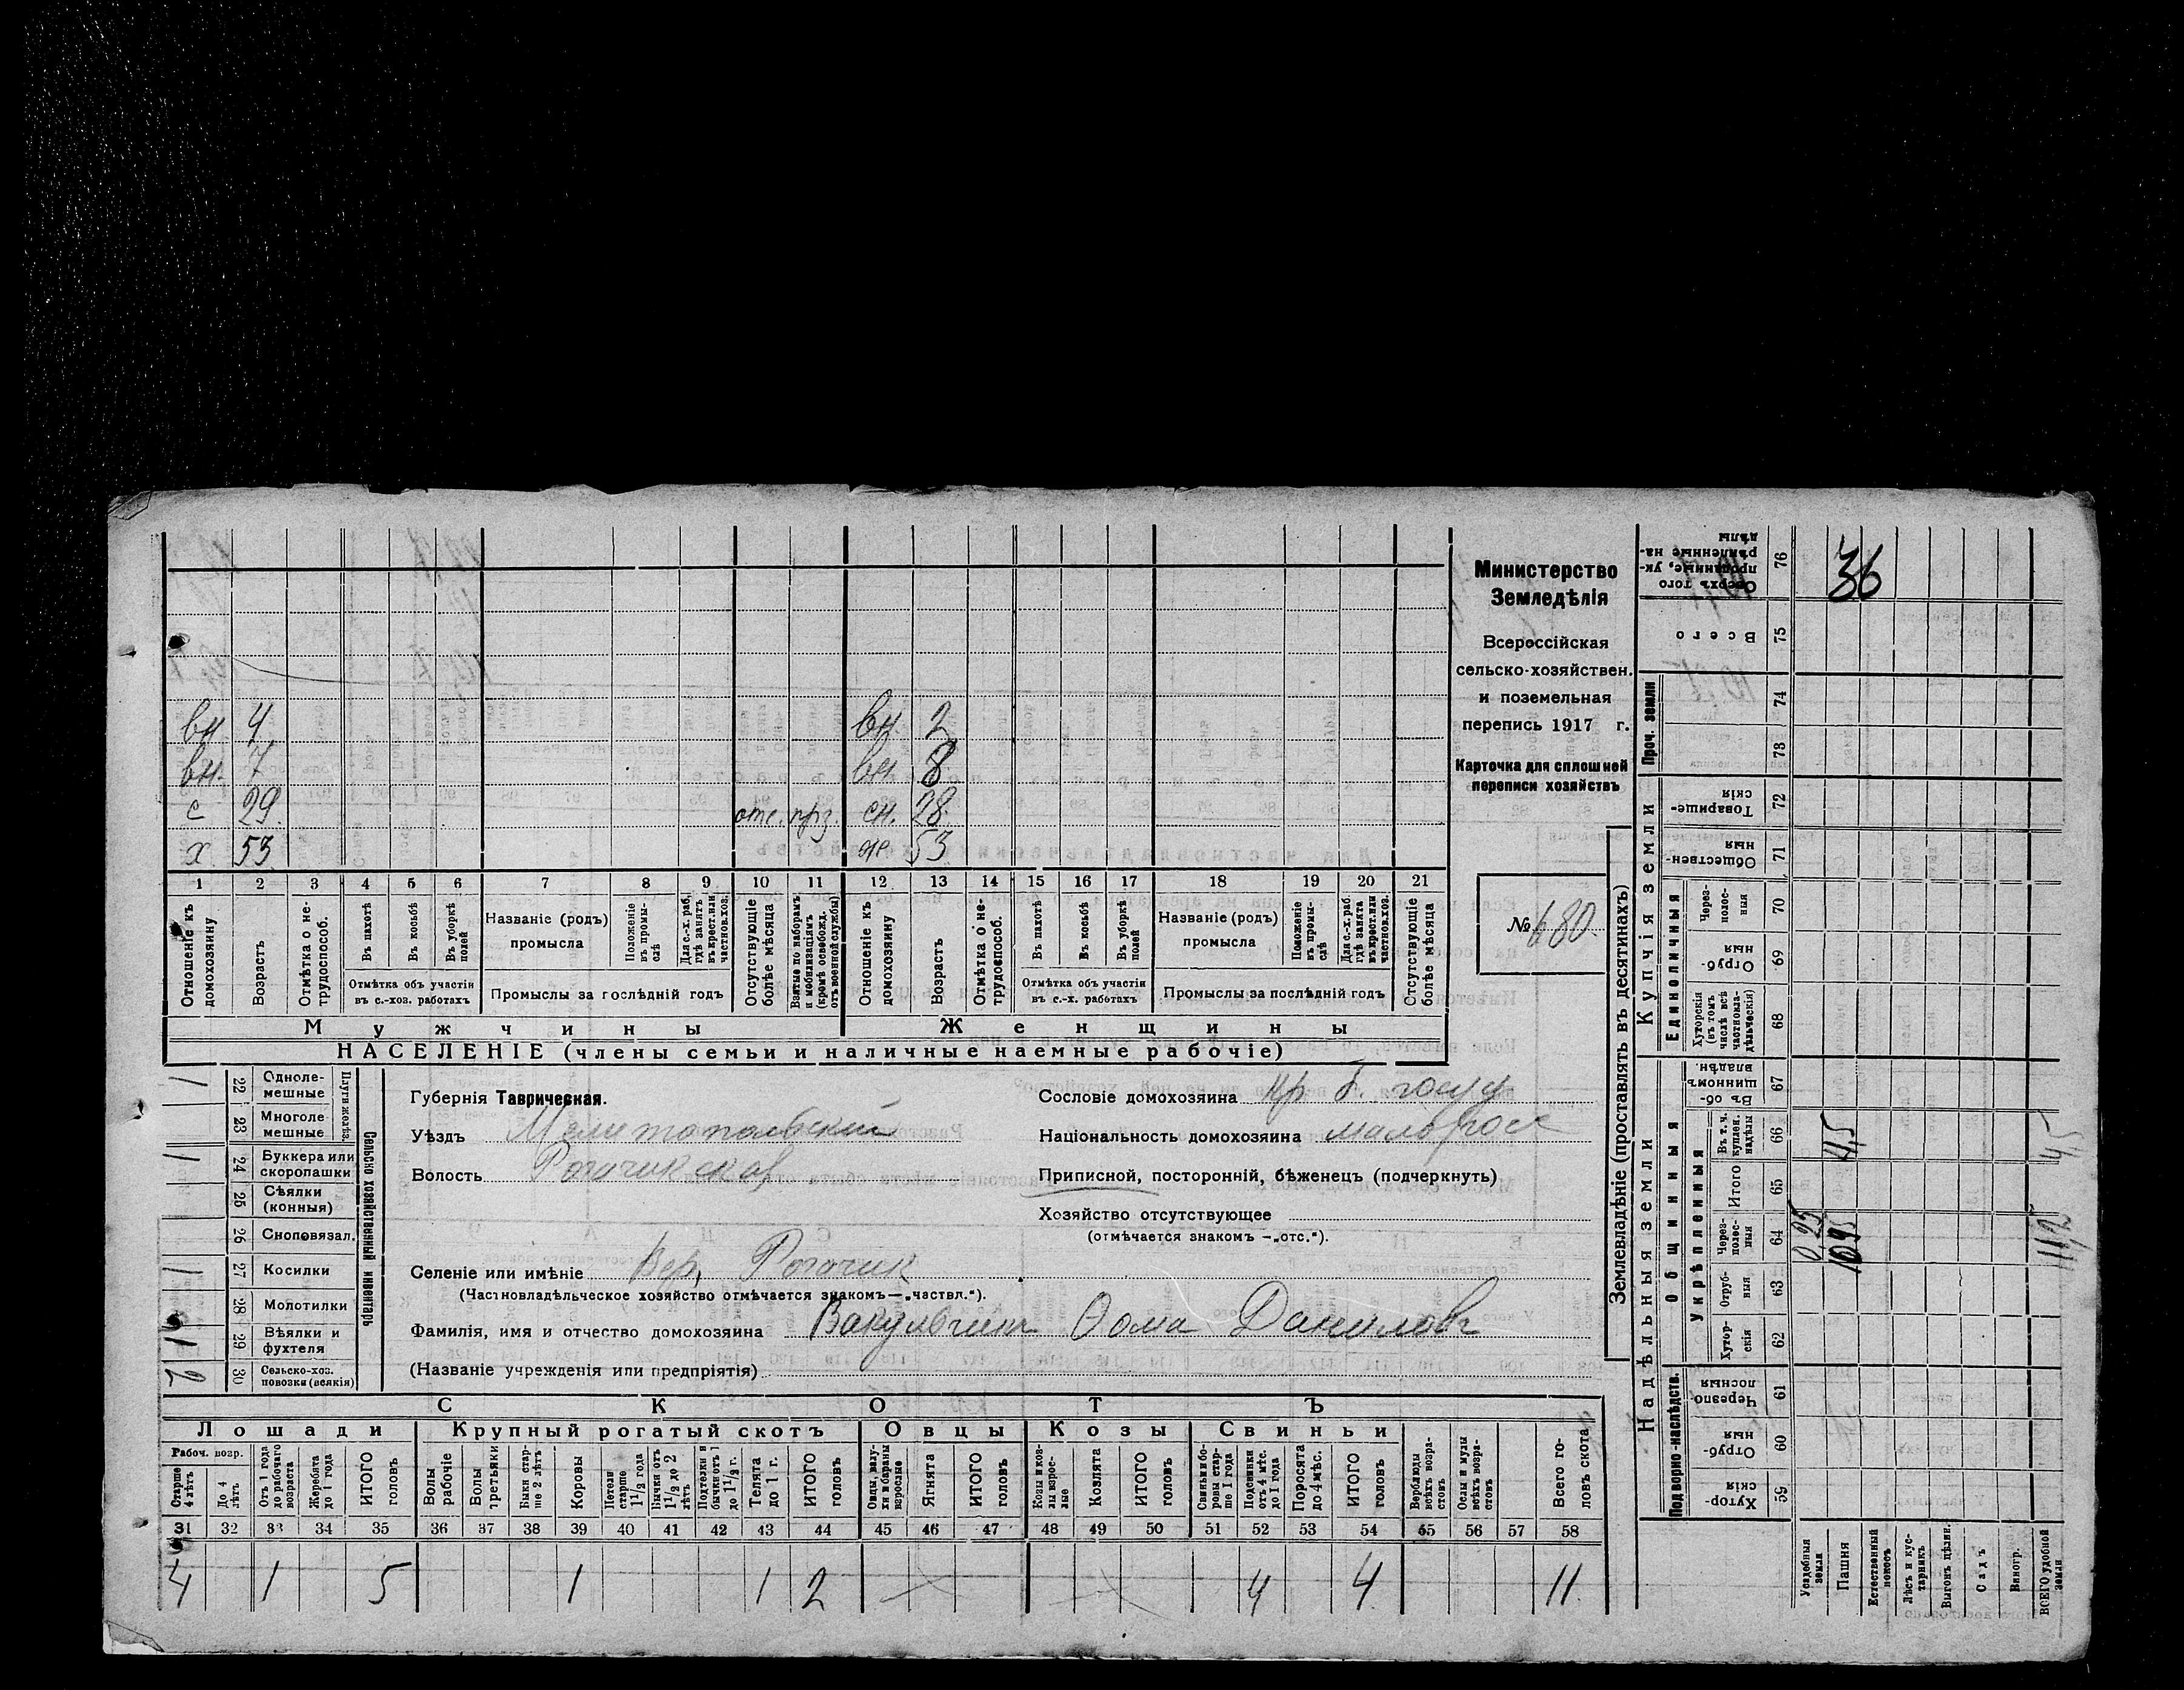 вн. 4 вн. 2
вн. 7 вн. 8
с 29 отс. прз. сн. 28
х 53 ж. 53
1 2 3 4 5 6 7 8 9 10 11 12 13 14 15 16 17 18 19 20 21
Отношеніе къ домохозяину
Возрастъ
Отмѣтка о нетрудоспособ.
Въ пахотѣ
Въ косьбѣ
Въ уборкѣ полей
Отмѣтка объ участіи
въ с.-хоз. работахъ
Названіе (родъ)
промысла
Положеніе въ промыслѣ
Для с.-х. раб. гдѣ занятъ въ крест. или частновл. хоз.
Промыслы за послѣдній годъ
Отсутствующіе болѣе мѣсяца
Взятые по наборамъ и мобилизаціямъ (кромѣ освобожд. отъ военной службы)
Отношеніе къ домохозяину
Возрастъ
Отмѣтка о нетрудоспособ.
Въ пахотѣ
Въ косьбѣ
Въ уборкѣ полей
Отмѣтка объ участіи
въ с.-х. работахъ
Названіе (родъ)
промысла
Положеніе въ промыслѣ
Для с.-х. раб. гдѣ занята въ крест. или частнов. хоз.
Промыслы за послѣдній годъ
Отсутствующіе болѣе мѣсяца
Мужчины Женщины
НАСЕЛЕНІЕ (члены семьи и наличные наемные рабочіе)
Министерство
Земледѣлія
Всероссійская
сельско-хозяйствен.
и поземельная
перепись 1917 г.
Карточка для сплошной
переписи хозяйствъ
№ 680.
Сельско хозяйственный инвентарь
Плуги желѣз.
1 22 Одноле-
мешные
23 Многоле
мешные
1 24 Буккера или
скоропашки
25 Сѣялки
(конныя)
26 Сноповязал.
1 27 Косилки
28 Молотилки
1 29 Вѣялки и
фухтеля
30 Сельско-хоз.
повозки (всякія)
Губернія Таврическая.
Уѣздъ Мелитопольскій
Волость Рогачикская
Селеніе или имѣніе Вер. Рогачик
(Частновладѣльческое хозяйство отмѣчается знакомъ—„частвл.“).
Фамилія, имя и отчество домохозяина Вакульчик Ѳома Данилов
(Названіе учрежденія или предпріятія)
Сословіе домохозяина кр. б. госуд
Національность домохозяина малорос
Приписной, посторонній, бѣженецъ (подчеркнуть)
Хозяйство отсутствующее
(отмѣчается знакомъ —„отс.“).
СКОТЪ
Лошади Крупный рогатый скотъ Овцы Козы Свиньи
Рабоч. возр.
Старше 4 лѣтъ
До 4 лѣтъ
Отъ 1 года до рабочаго возраста
Жеребята до 1 года
ИТОГО головъ
Волы рабочіе
Волы третьяки
Быки старше 2 лѣтъ
Коровы
Нетели старше 1 1/2 года
Бычки отъ 1 1/2 до 2 лѣтъ
Подтелки и бычки отъ 1 до 1 1/2 г.
Телята до 1 г.
ИТОГО головъ
Овцы, валухи и бараны взрослые
Ягнята
ИТОГО головъ
Козы и козлы взрослые
Козлята
ИТОГО головъ
Свиньи и боровы старше 1 года
Подсвинки отъ 4 мѣс. до 1 года
Поросята до 4 мѣс.
ИТОГО головъ
Верблюды всѣхъ возрастовъ
Ослы и мулы всѣхъ возрастовъ
Всего головъ скота
31 32 33 34 35 36 37 38 39 40 41 42 43 44 45 46 47 48 49 50 51 52 53 54 55 56 57 58
4 1 5 1 1 2 4 4 11
Землевладѣніе (проставлять въ десятинахъ)
Надѣльныя земли
Купчія земли
Подворно-наслѣдств.
Общинныя
Укрѣпленныя
Единоличныя
Проч. земли
Сверхъ того проданные, укрѣпленные надѣлы 76 36
Всего 75
74
73
Товарищескія 72
Общественныя 71
Черезполосныя 70
Отрубныя 69
Хуторскія (въ томъ числѣ всѣ частновладѣльческія) 68
Въ общинномъ владѣн. 67
Въ т. ч. куплен. надѣлы 66 4,5 4,5
Итого 65
Черезполосныя 64 0,25 10,95 11,2
Отрубныя 63
Хуторскія 62
Черезполосныя 61
Отрубныя 60
Хуторскія 59
Усадебная земля
Пашня
Естественный покосъ
Лѣсъ и кустарникъ
Выгонъ цѣлин.
Садъ
Виногр.
ВСЕГО удобной земли